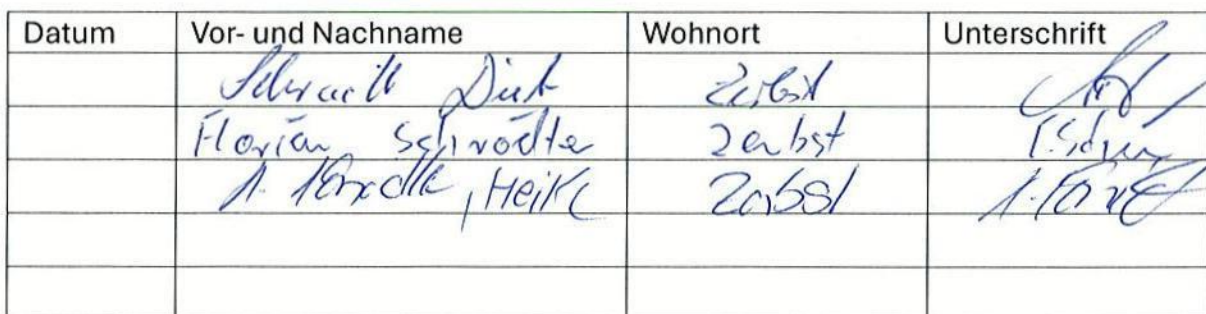 Datum Vor- und Nachname Wohnort Unterschrift
Schmidt Dirk Zerbst
Florian Schrödter Zerbst
Heike Zerbst